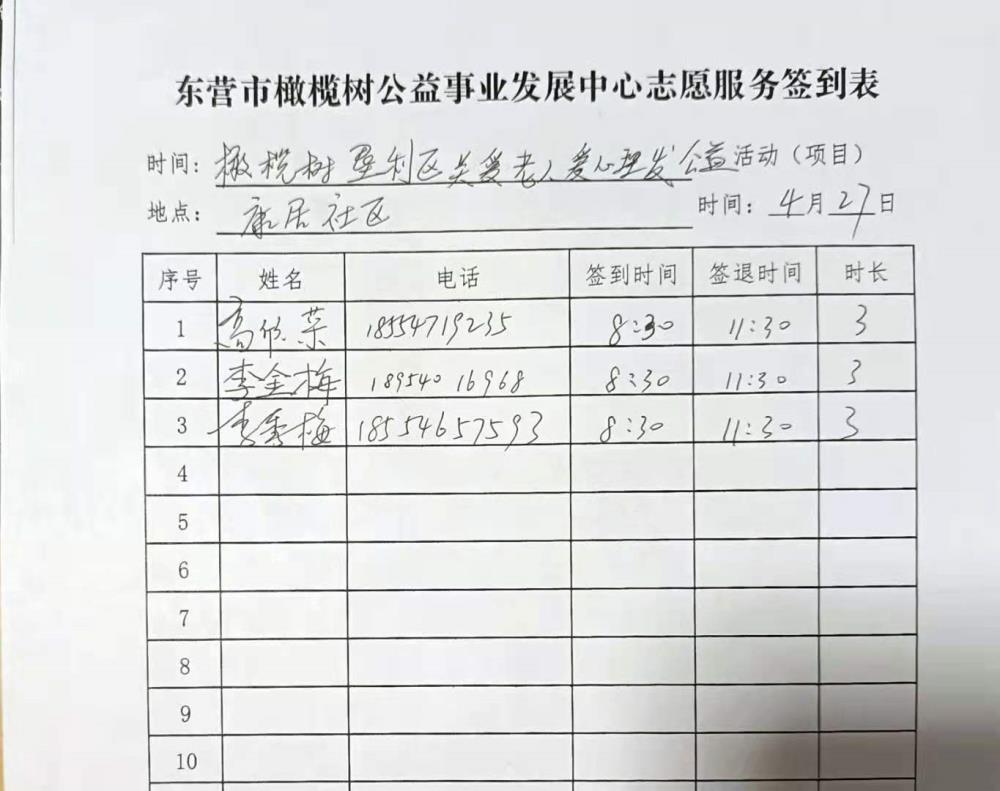 东营市橄榄树公益事业发展中心志愿服务签到表
时间：橄榄树垦利区关爱老人爱心理发公益活动（项目）
地点：康居社区 时间：4月27日
序号 姓名 电话 签到时间 签退时间 时长
1 高欣荣 18554719235 8:30 11:30 3
2 李全梅 18954016968 8:30 11:30 3
3 李秀梅 18554657593 8:30 11:30 3
4
5
6
7
8
9
10